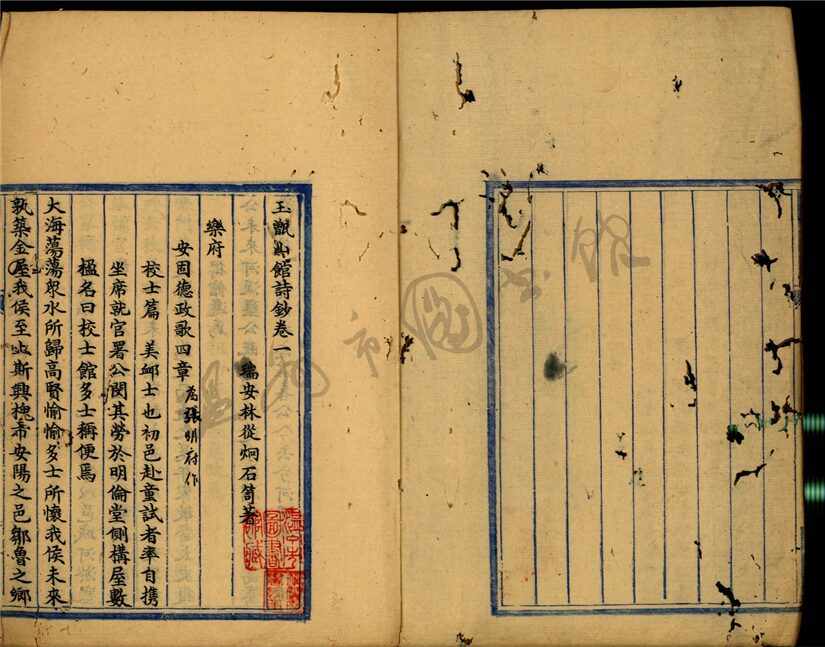 玉甑山館詩鈔卷一
瑞安林從炯石笥著
樂府
安固德政歌四章為張明府作
校士篇 美邺士也初邑赴童試者率自携
坐席就官署公閔其勞於明倫堂側構屋數
楹名曰校士館多士稱便焉
大海蕩蕩眾水所歸高賢愉愉多士所懷我侯未來
孰築金屋我侯至止斯興安陽之邑鄒魯之鄉
溫州市圖書館